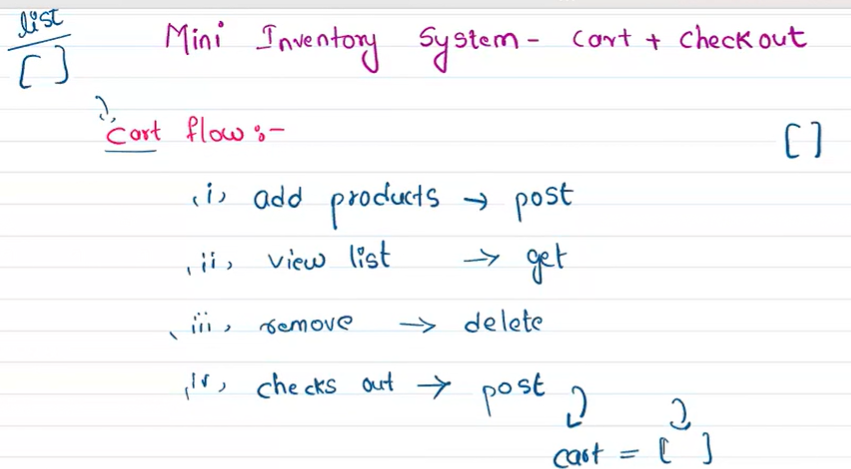 list
[ ]
Mini Inventory System - cart + checkout
cart flow :-
[ ]
(i) add products → post
(ii) view list → get
(iii) remove → delete
(iv) checks out → post
cart = [ ]